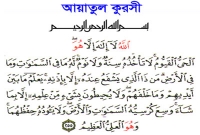 আয়াতুল কুরসী
بسم الله الرحمن الرحيم
اللَّهُ لَا إِلَٰهَ إِلَّا هُوَ
الْحَيُّ الْقَيُّومُ لَا تَأْخُذُهُ سِنَةٌ وَلَا نَوْمٌ لَهُ مَا فِي السَّمَاوَاتِ وَمَا
فِي الْأَرْضِ مَنْ ذَا الَّذِي يَشْفَعُ عِنْدَهُ إِلَّا بِإِذْنِهِ يَعْلَمُ مَا بَيْنَ
أَيْدِيهِمْ وَمَا خَلْفَهُمْ وَلَا يُحِيطُونَ بِشَيْءٍ مِنْ عِلْمِهِ إِلَّا بِمَا
شَاءَ وَسِعَ كُرْسِيُّهُ السَّمَاوَاتِ وَالْأَرْضَ وَلَا يَئُودُهُ حِفْظُهُمَا
وَهُوَ الْعَلِيُّ الْعَظِيمُ ٢٥٥